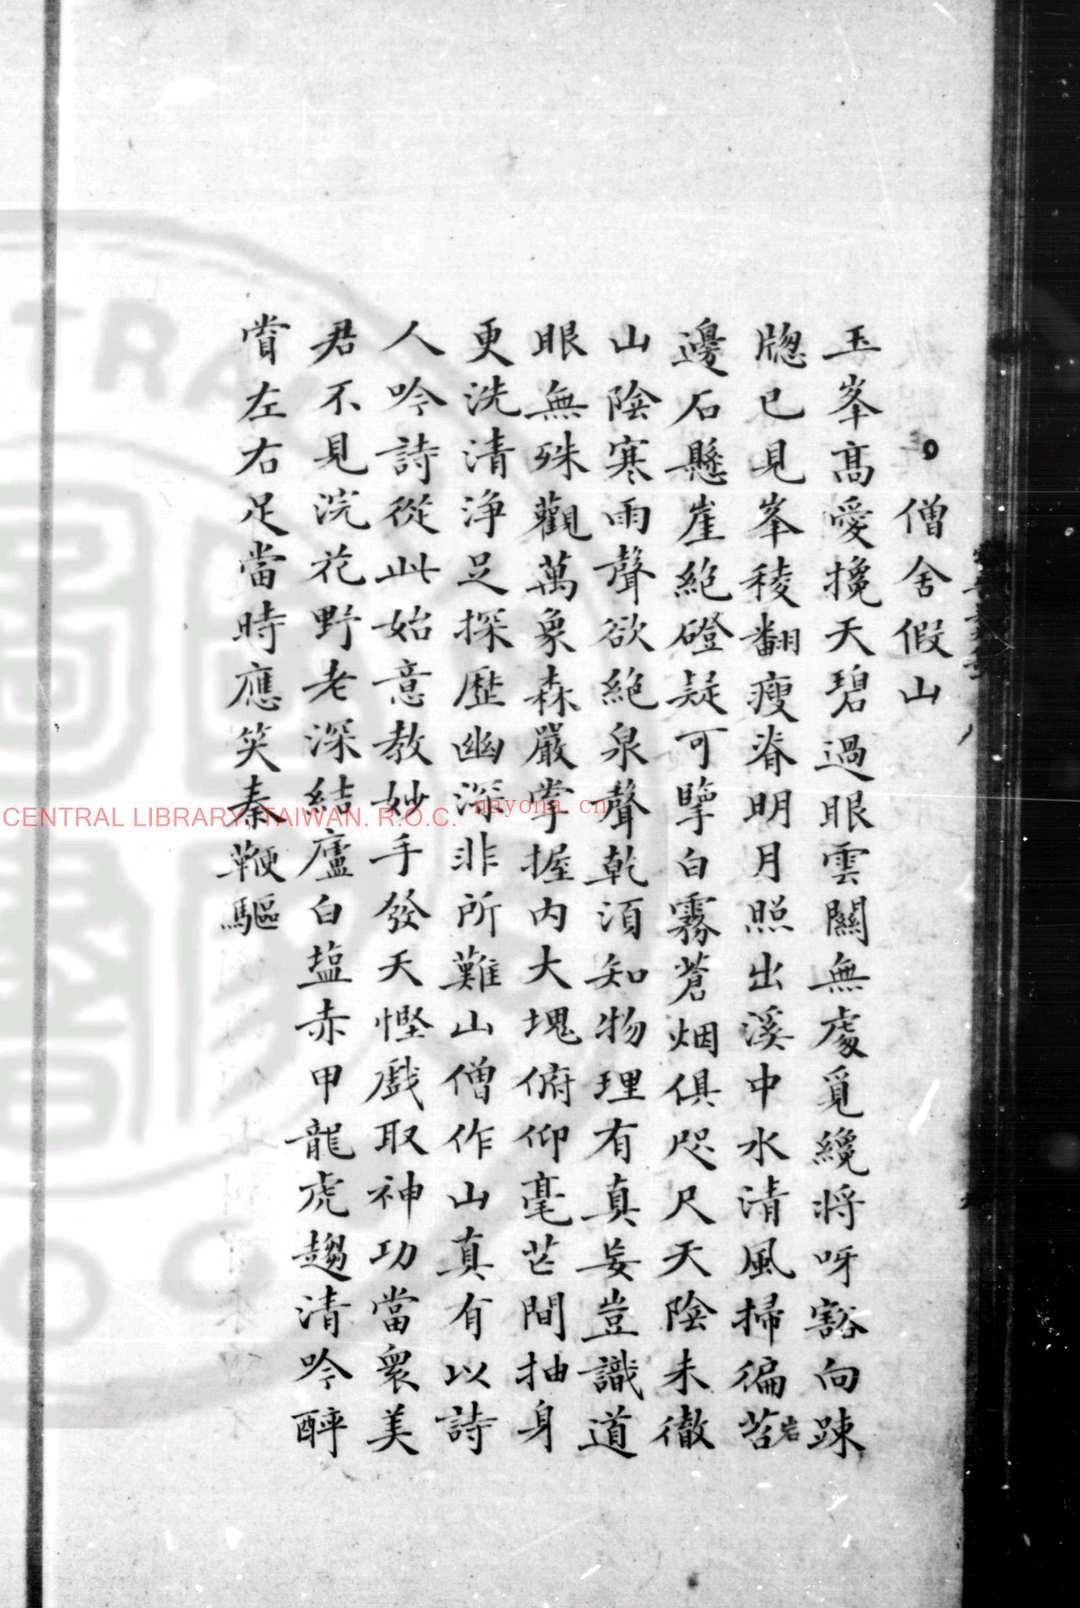 僧舍假山
玉峯髙愛攙天碧過眼雲關無處覓纔將呀豁向踈
牎已見峯稜翻瘦脊明月照出溪中水清風掃徧苔岩
邊石懸崖絶磴疑可擥白霧蒼烟俱咫尺天陰未徹
山陰寒雨聲欲絶泉聲乾須知物理有真妄豈識道
眼無殊觀萬象森嚴掌握内大塊俯仰毫芒間抽身
更洗清浄足探歷幽深非所難山僧作山真有以詩
人吟詩從此始意教妙手發天慳戲取神功當衆美
君不見浣花野老深結廬白塩赤甲龍虎趨清吟醉
嘗左右足當時應笑秦鞭驅
CENTRAL LIBRARY, TAIWAN. R.O.C.
nayona.cn